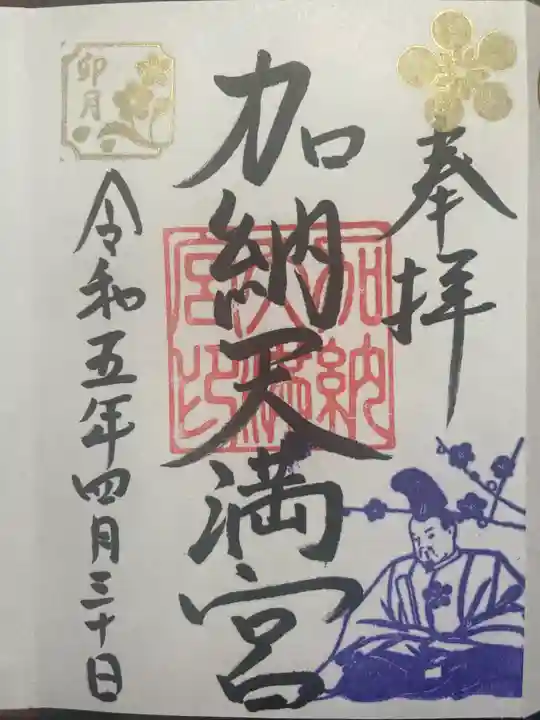 奉拝
加納天満宮
加納天満宮印
卯月
令和五年四月三十日